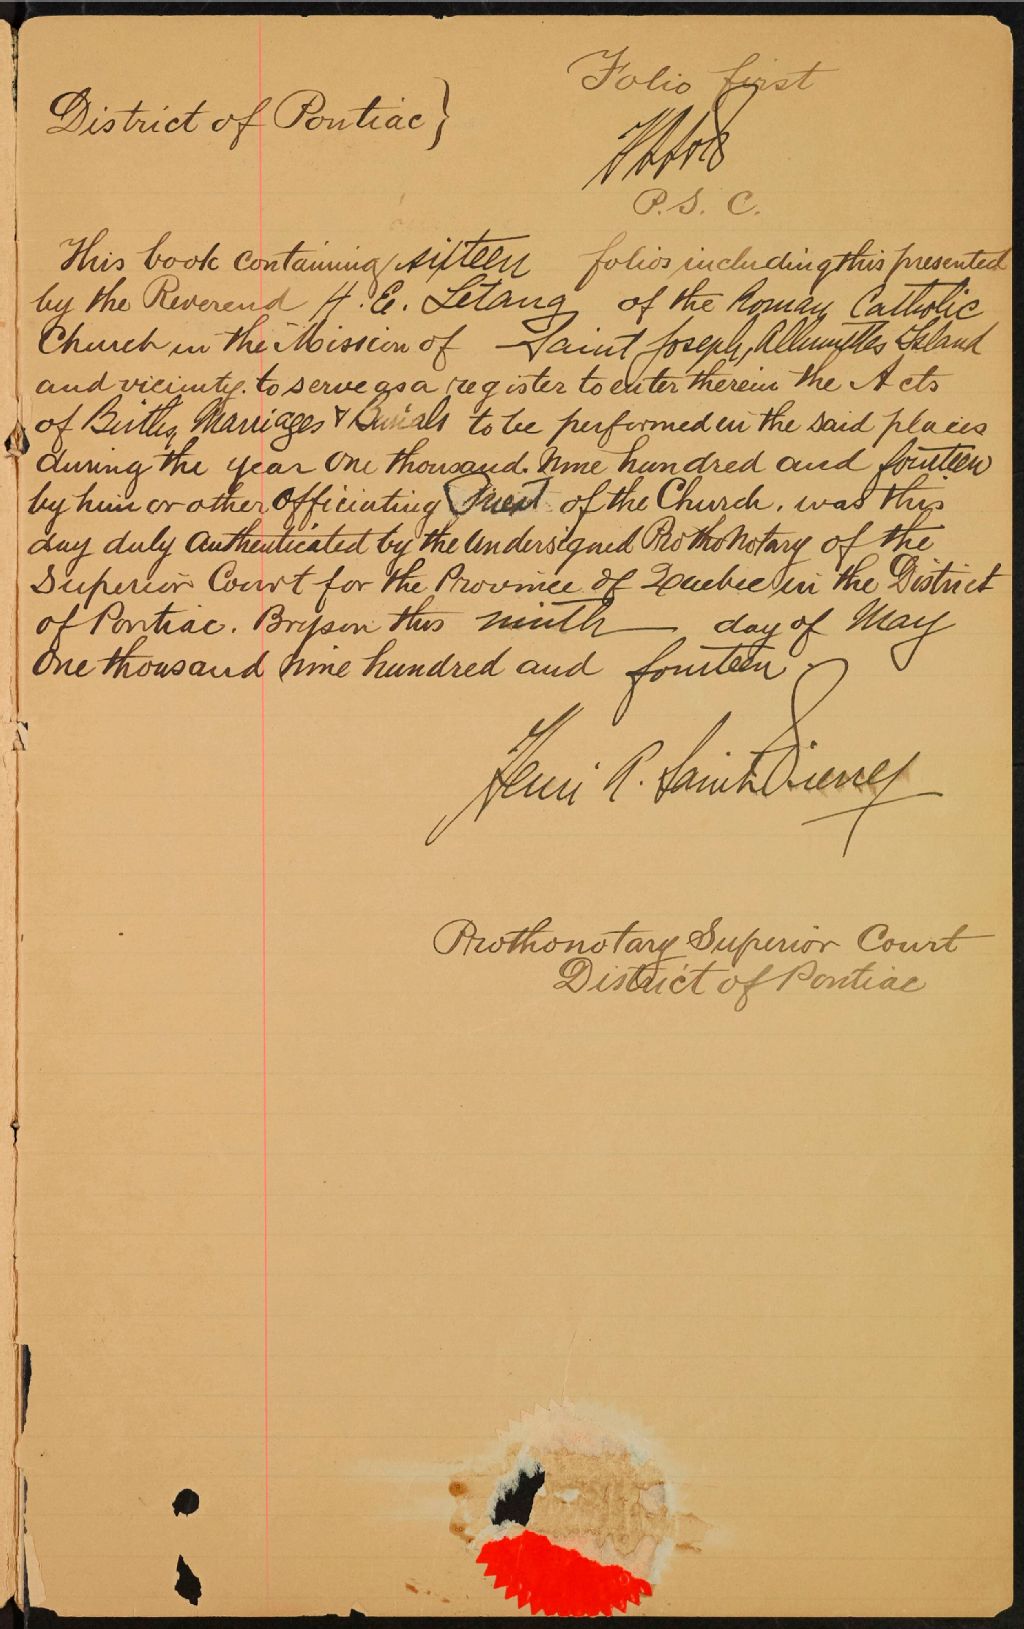 Folio first
District of Pontiac}
P.S.C.
This book containing sixteen folios including this presented
by the Reverend H. E. Létang of the Roman Catholic
Church in the Mission of Saint Joseph, Allumettes Island
and vicinity. to serve as a register to enter therein the Acts
of Births, Marriages & Burials to be performed in the said places
during the year One thousand. Nine hundred and fourteen
by him or other Officiating Priest of the Church. was this
day duly Authenticated by the Undersigned Prothonotary of the
Superior Court for the Province of Quebec in the District
of Pontiac. Bryson this ninth day of May
One thousand Nine hundred and fourteen.
Henri R. Saint Pierre
Prothonotary Superior Court
District of Pontiac